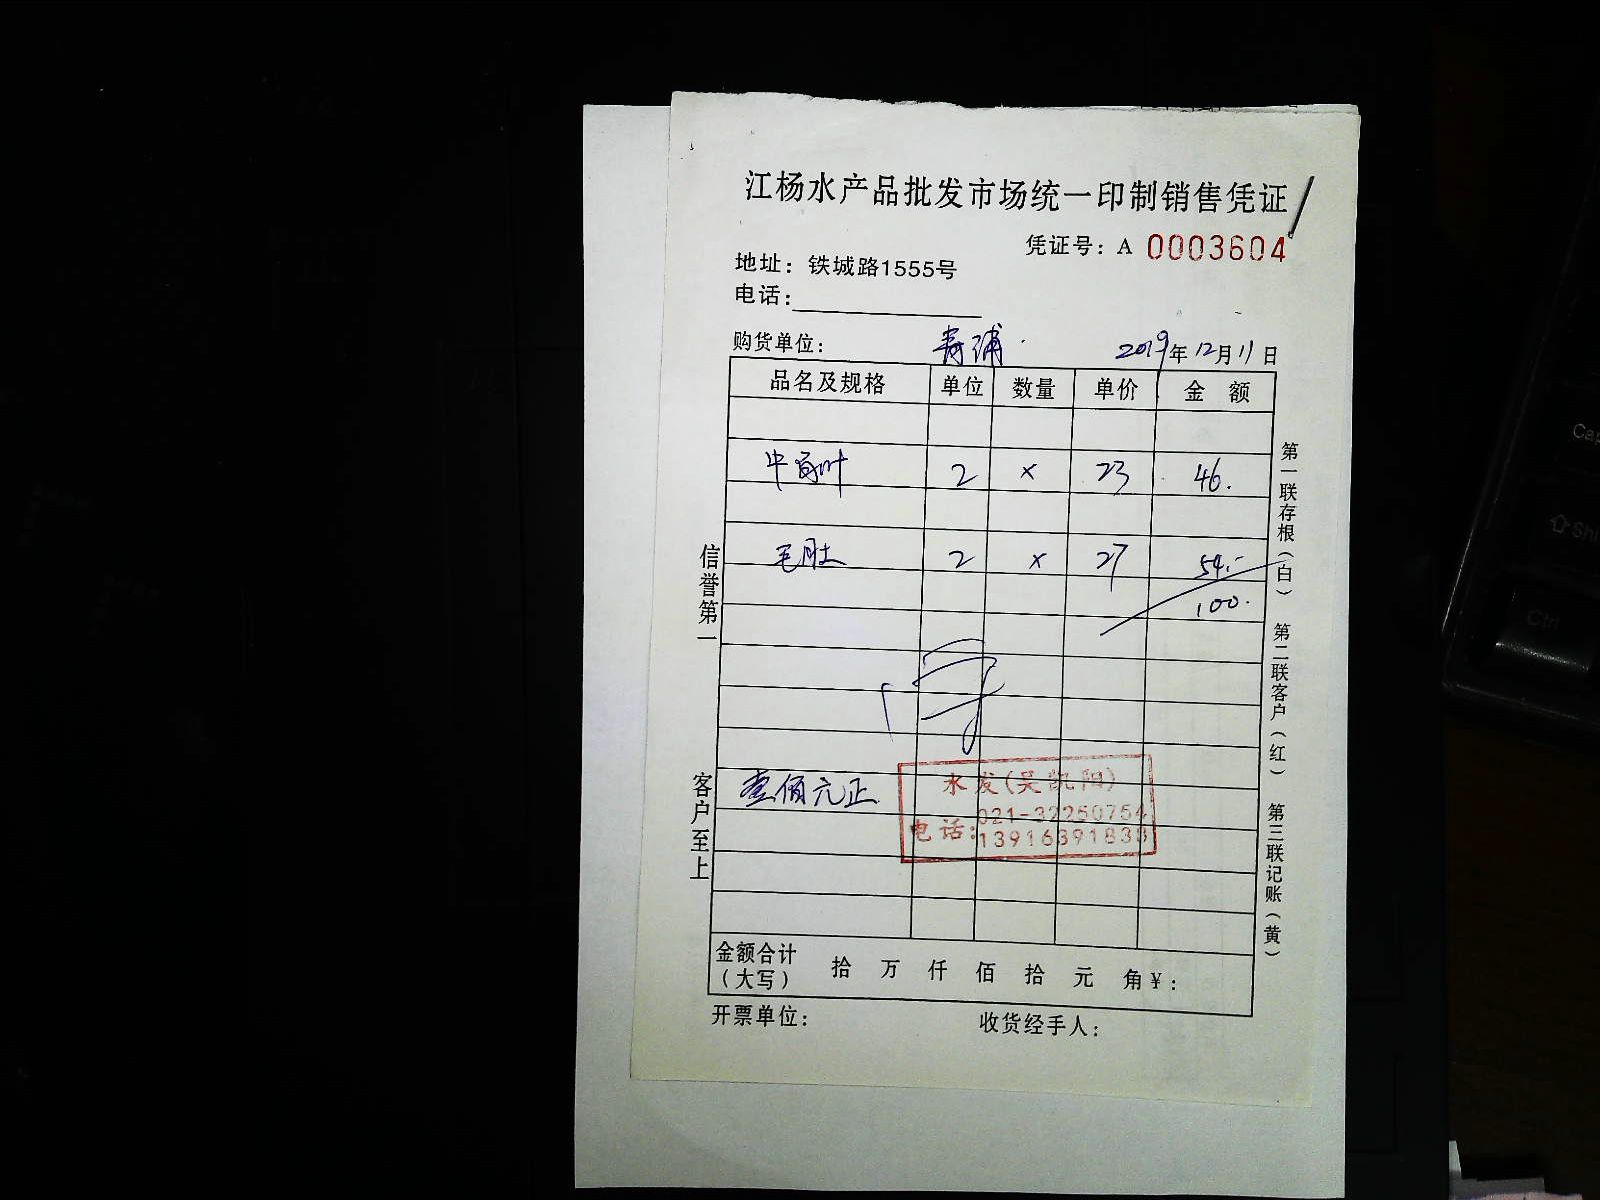 江杨水产品批发市场统一印制销售凭证
凭证号：A 0003604
地址：铁城路1555号
电话：
购货单位： 寿浦 2019年12月11日
品名及规格 单位 数量 单价 金 额
牛百叶 2 × 23 46.
毛肚 2 × 27 54.-
100.
壹佰元正
水发(吴凯阳)
电话：021-32250754
13916391833
金额合计（大写） 拾 万 仟 佰 拾 元 角 ¥：
开票单位： 收货经手人：
信誉第一
客户至上
第一联存根（白） 第二联客户（红） 第三联记账（黄）
Ctrl